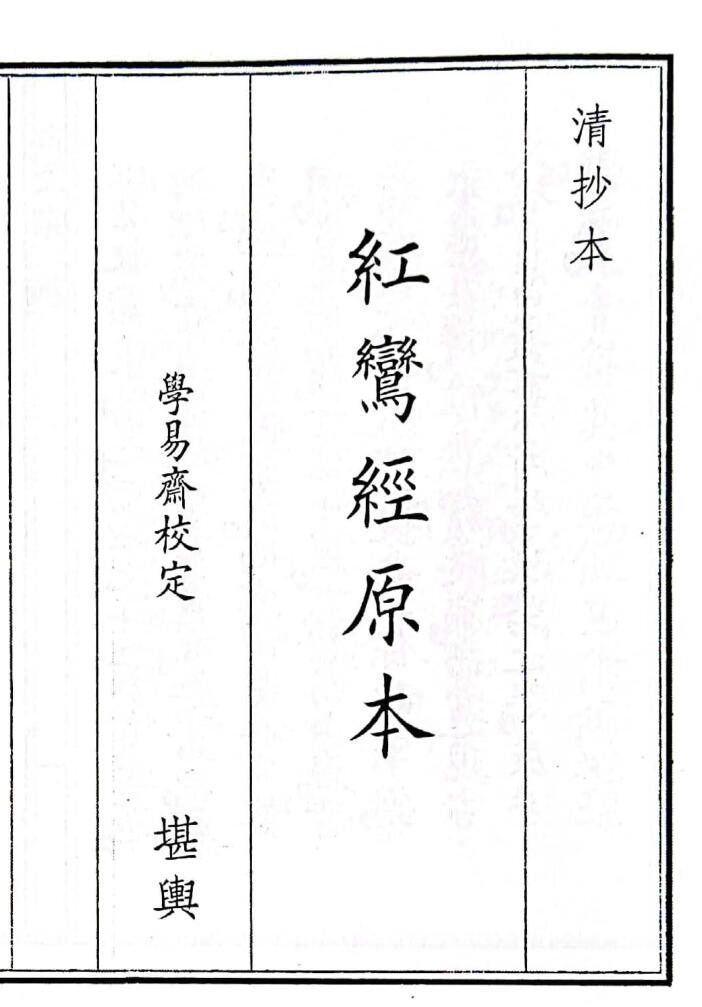 清抄本
紅鸞經原本
學易齋校定
堪輿